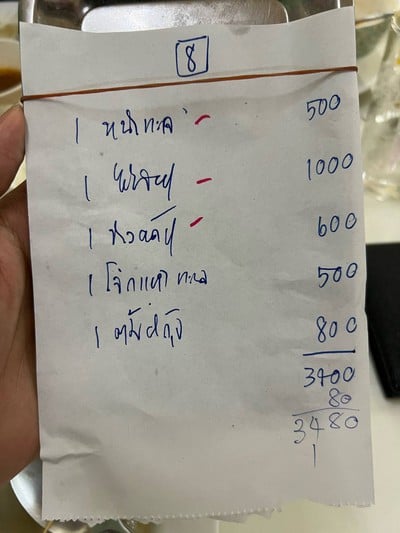 8
1 หน้าทะเล 500
1 1000
1 ข้าวผัดปู 600
1 โจ๊กแห้งทะเล 500
1 ต้มยำกุ้ง 800
3400
80
3480